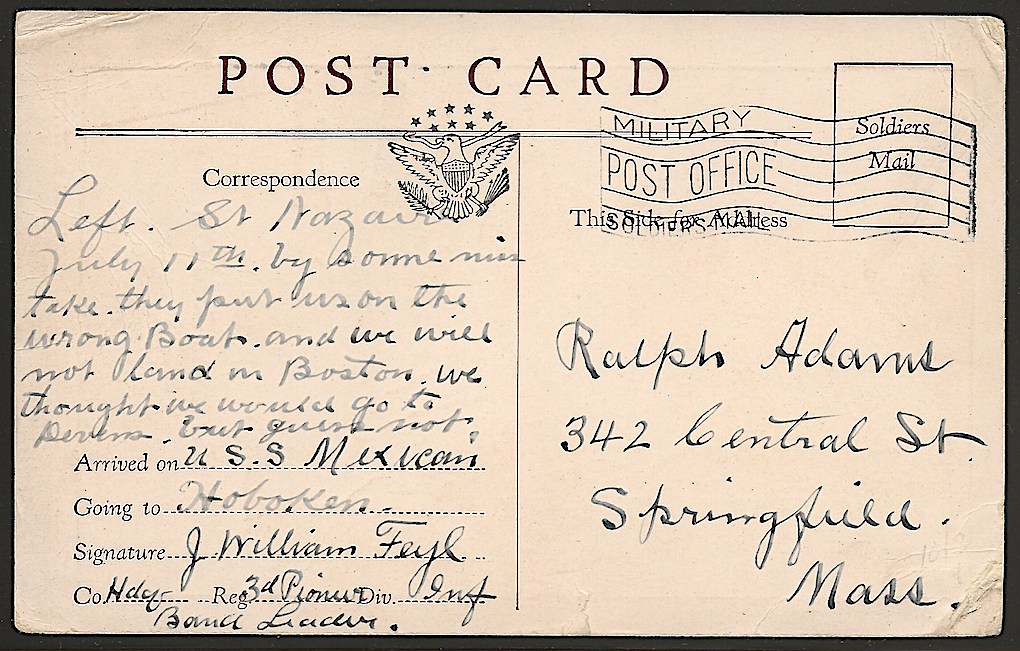 POST CARD
Correspondence
Left. St Nazaire
July 11th. by some mis
take. they put us on the
wrong Boat. and we will
not land in Boston. we
thought we would go to
Devens. but guess not.
Arrived on U S.S Mexican
Going to Hoboken.
Signature J William Feyl
Co. Hdq- Reg. 3d Pioneer Div. Inf
Band Leader.
MILITARY
POST OFFICE
SOLDIERS MAIL
Soldiers
Mail
This Side for Address
Ralph Adams
342 Central St.
Springfield.
Mass.